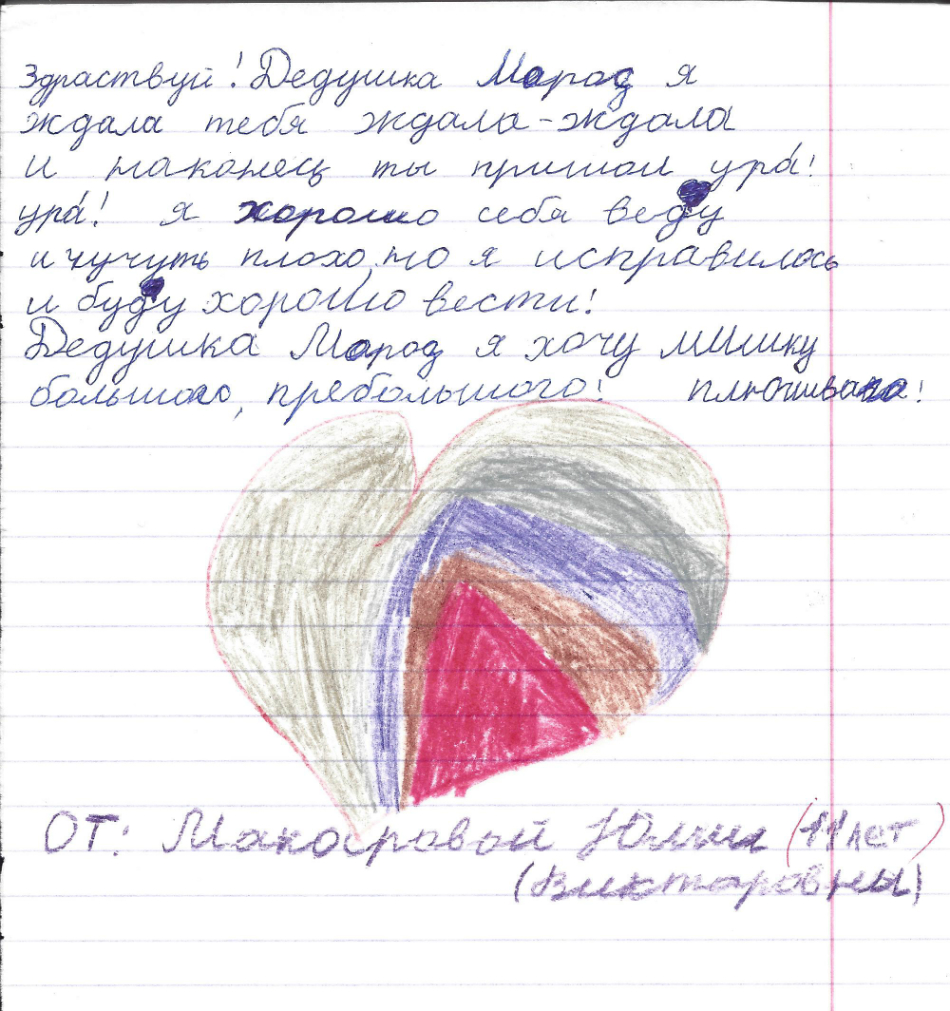 Здраствуй! Дедушка Марод я
ждала тебя ждала-ждала
и наконец ты пришол ура!
ура! я хорошо себя веду
и чучуть плохо, но я исправилось
и буду хорошо вести!
Дедушка Марод я хочу мишку
большого, пребольшого! плюшывого!
ОТ: Макаровый Юлии (11 лет)
(Виктаровны)